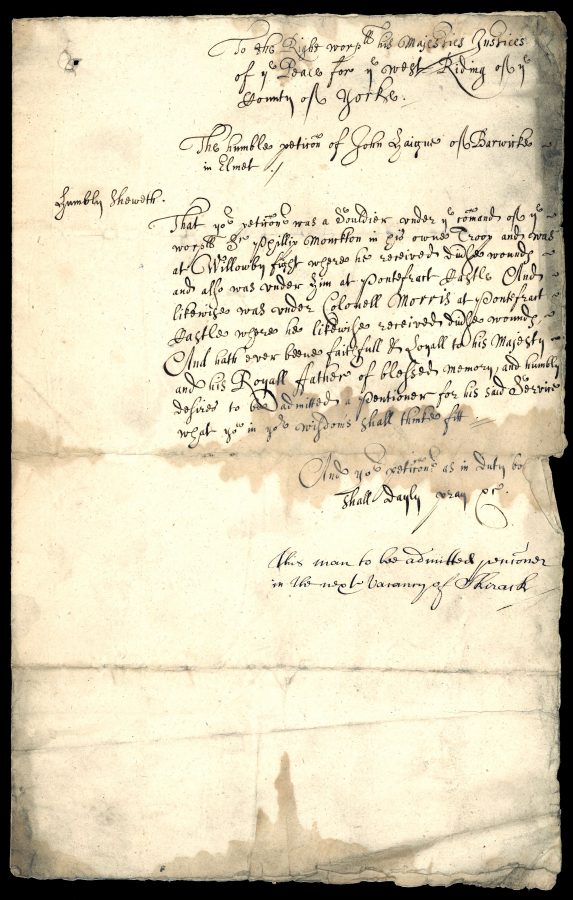 To the Right worpll his Majesties Justices
of ye Peace for ye west Riding of ye
County of Yorke.
The humble peticon of John Haigue of Barwicke
in Elmet
Humbly Sheweth.
That yor peticonr was a Souldier vnder ye comand of ye
worpll Sr Phillip Monckton in his owne Troop and was
at Willowby fight where he received divse wounds
and also was vnder him at Pontefract Castle And
likewise was vnder Colonell Morris at Pontefract
Castle where he likewise received divse wounds
And hath ever beene faithfull & Loyall to his Majesty
and his Royall Father of blessed memory, and humbly
desires to bee admitted a pentioner for his said Service
what yor in yor wisdoms shall thinke fitt
And yor peticonr as in duty bo
Shall dayly pray &c.
This man to bee admitted pencioner
in the next vacancy of Skirack